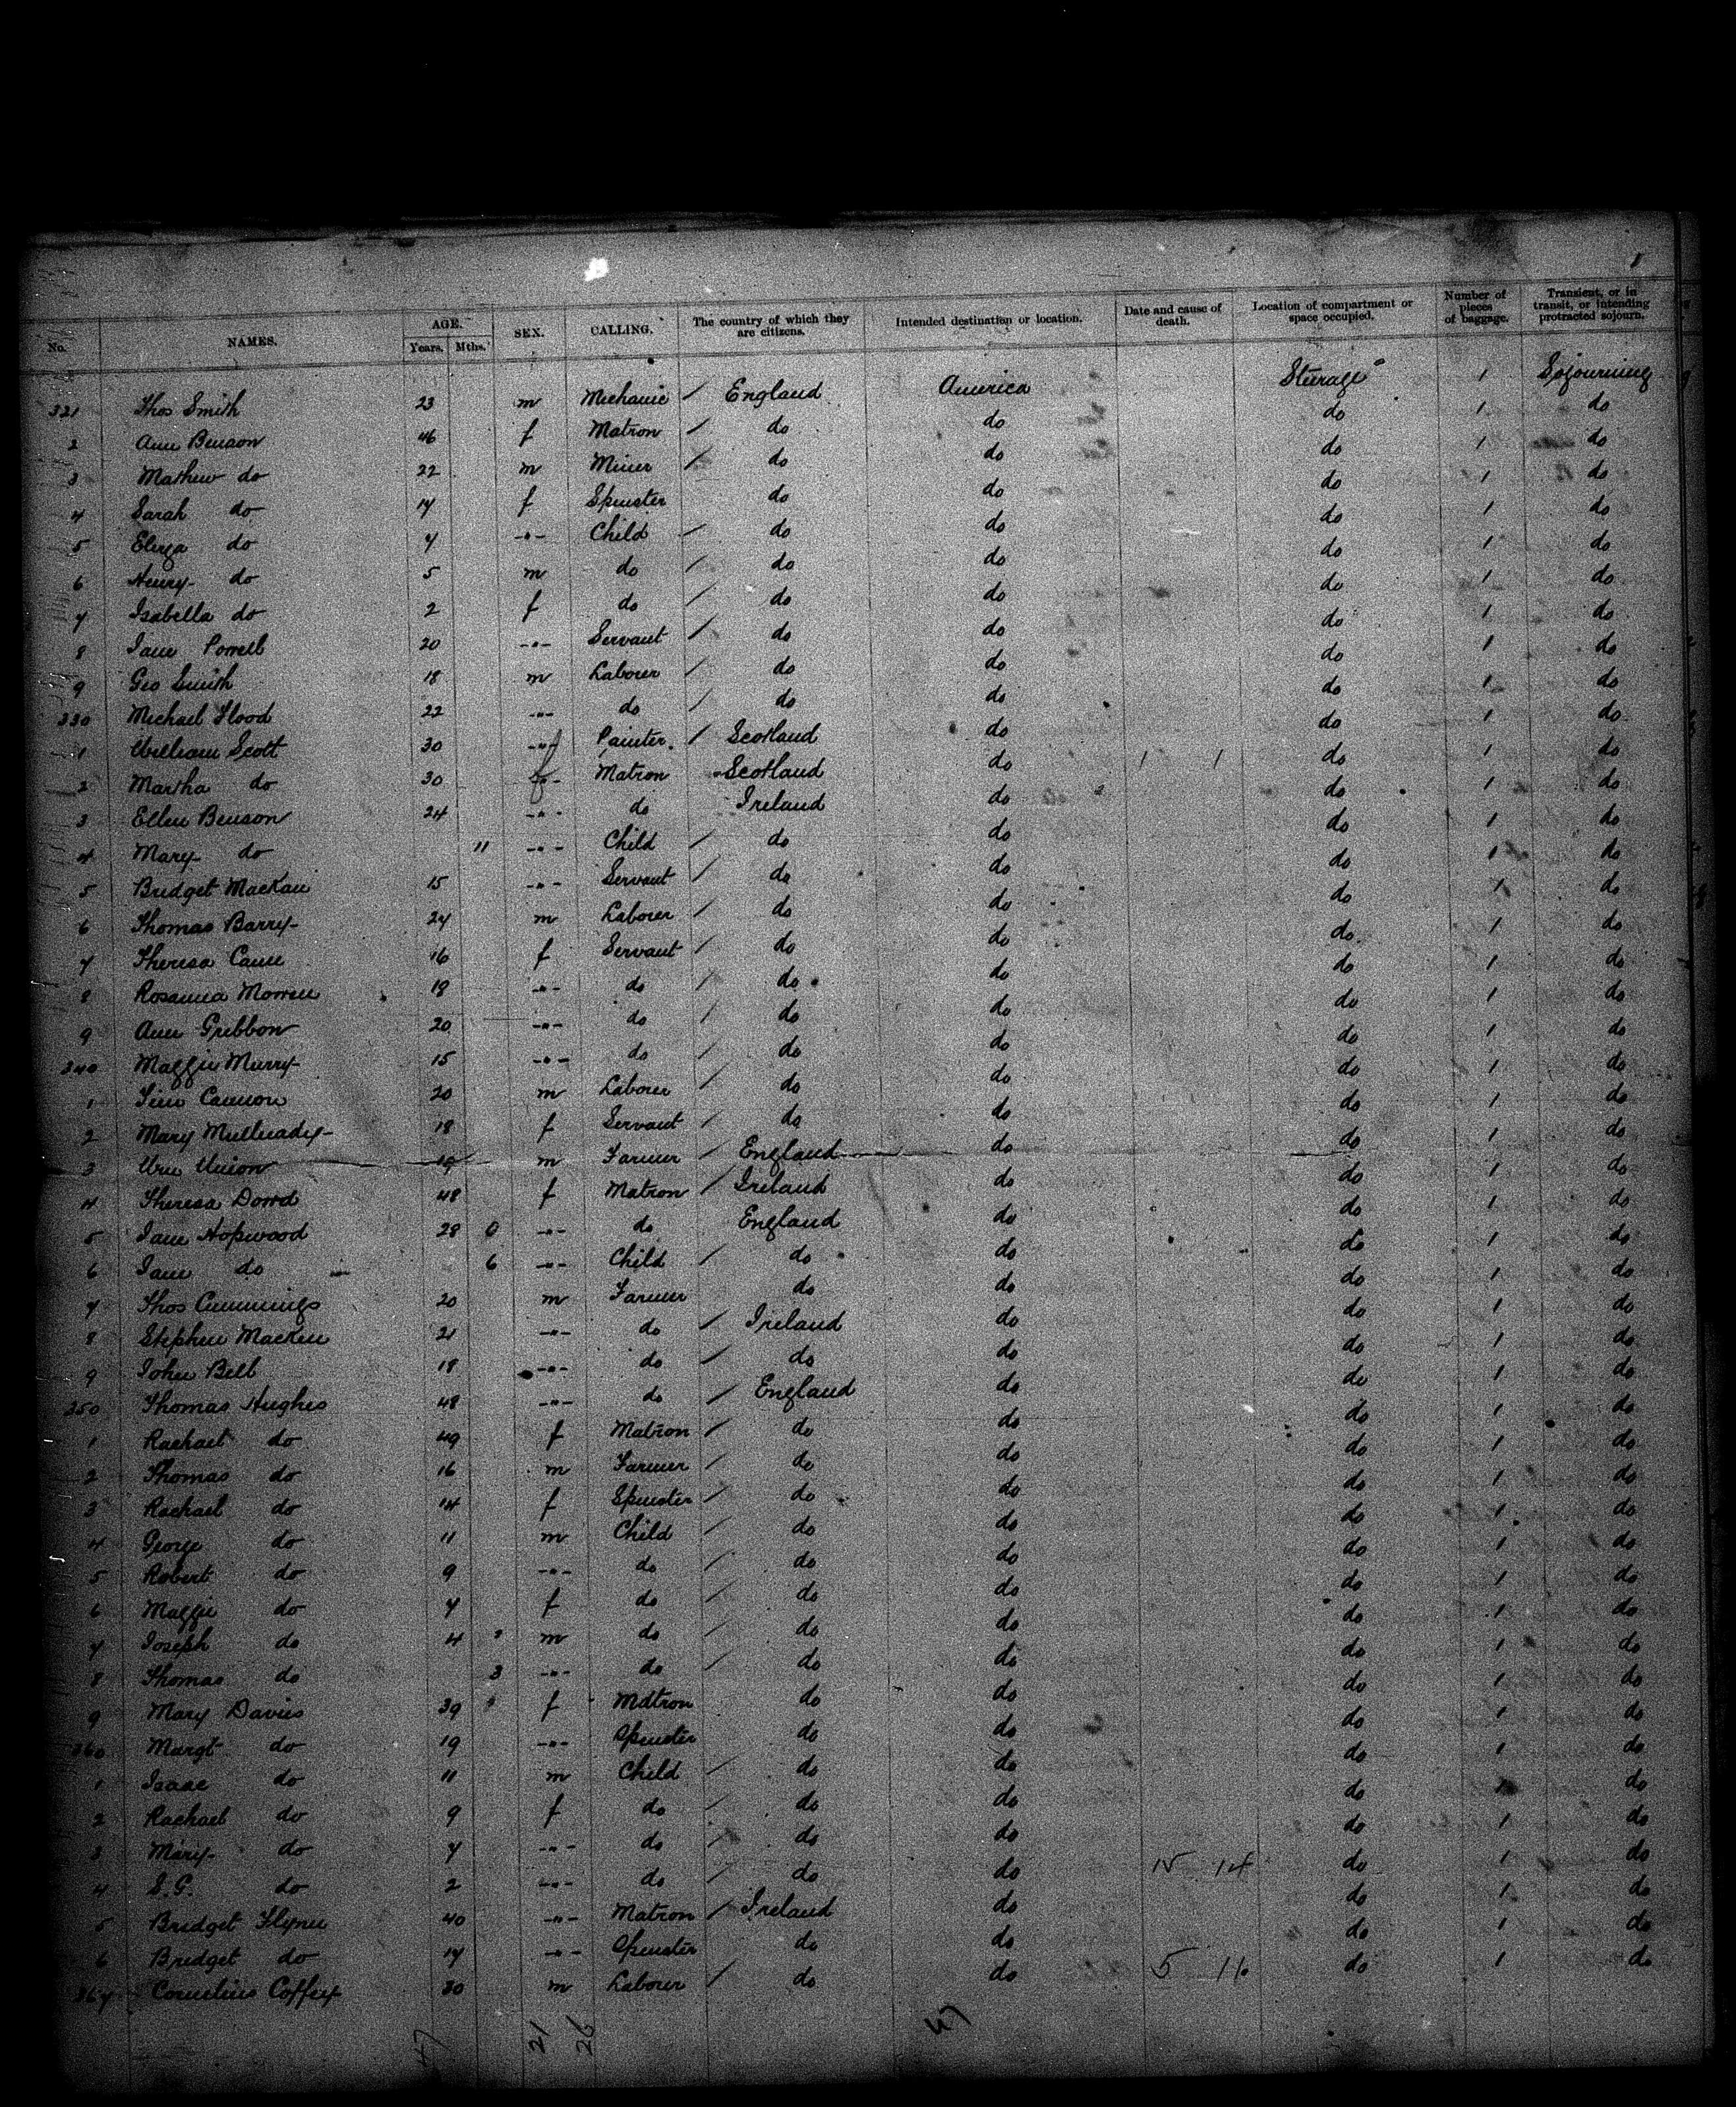 1
No. NAMES. AGE. Years. Mths. SEX. CALLING. The country of which they are citizens. Intended destination or location. Date and cause of death. Location of compartment or space occupied. Number of pieces of baggage. Transient, or in transit, or intending protracted sojourn.
321 Thos Smith 23 m Mechanic / England America Steerage 1 Sojourning
2 Ann Benson 46 f Matron / do do do 1 do
3 Mathew do 22 m Miner / do do do 1 do
4 Sarah do 17 f Spinster do do do 1 do
5 Eliza do 7 -"- Child / do do do 1 do
6 Henry do 5 m do / do do do 1 do
7 Isabella do 2 f do / do do do 1 do
8 Jane Powell 20 -"- Servant / do do do 1 do
9 Geo Smith 18 m Laborer / do do do 1 do
330 Michael Flood 22 -"- do / do do do 1 do
1 William Scott 30 -"- Painter / Scotland do do 1 do
2 Martha do 30 f Matron Scotland do 1 1 do 1 do
3 Ellen Benson 24 -"- do Ireland do do 1 do
4 Mary do 11 -"- Child / do do do 1 do
5 Bridget Mackan 15 -"- Servant / do do do 1 do
6 Thomas Barry 27 m Laborer / do do do 1 do
7 Theresa 16 f Servant / do do do 1 do
8 Rosanna 19 -"- do / do do do 1 do
9 Ann Gribbon 20 -"- do / do do do 1 do
340 Maggie Murry 15 -"- do / do do do 1 do
1 Cannon 20 m Laborer / do do do 1 do
2 Mary 18 f Servant / do do do 1 do
3 Wm 19 m Farmer / England do do 1 do
4 Theresa Dowd 48 f Matron / Ireland do do 1 do
5 Jane Hopwood 28 0 -"- do England do do 1 do
6 Jane do 6 -"- Child / do do do 1 do
7 Thos Cummings 20 m Farmer do do do 1 do
8 Stephen Macken 21 -"- do / Ireland do do 1 do
9 John Bell 18 -"- do / do do do 1 do
350 Thomas Hughes 48 -"- do / England do do 1 do
1 Rachael do 49 f Matron / do do do 1 do
2 Thomas do 16 m Farmer / do do do 1 do
3 Rachael do 14 f Spinster / do do do 1 do
4 George do 11 m Child / do do do 1 do
5 Robert do 9 -"- do / do do do 1 do
6 Maggie do 7 f do / do do do 1 do
7 Joseph do 4 m do / do do do 1 do
8 Thomas do 3 -"- do / do do do 1 do
9 Mary Davies 39 f Matron do do do 1 do
360 Margt do 19 -"- Spinster do do do 1 do
1 Isaac do 11 m Child / do do do 1 do
2 Rachael do 9 f do / do do do 1 do
3 Mary do 7 -"- do / do do do 1 do
4 S.G. do 2 -"- do / do do 15 14 do 1 do
5 Bridget Flynn 40 -"- Matron / Ireland do do 1 do
6 Bridget do 17 -"- Spinster do do do 1 do
367 Cornelius Coffey 30 m Laborer / do do 5 11 do 1 do
47 21 26 47